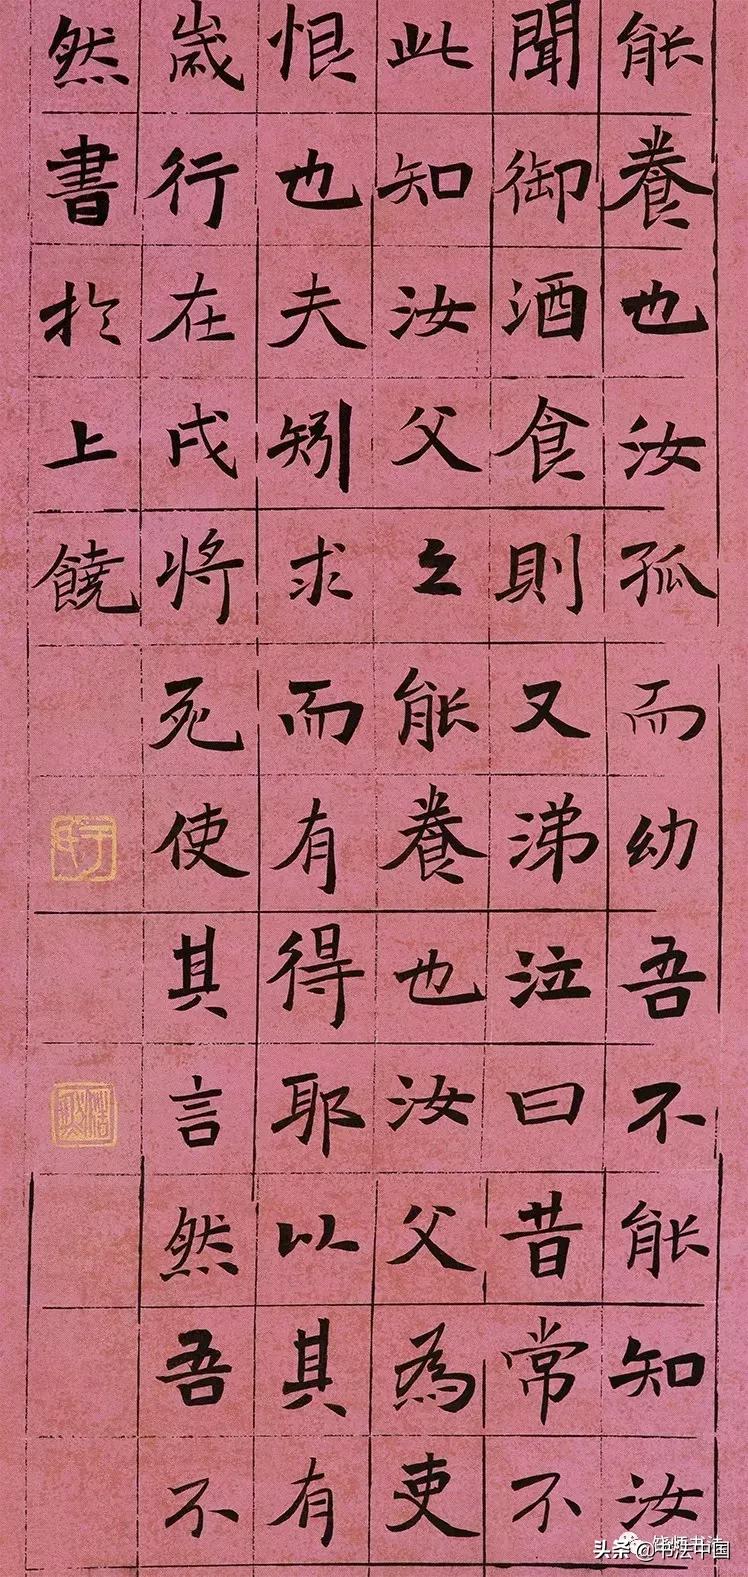 能養也汝孤而幼吾不能知汝
聞御酒食則又涕泣曰昔常不
此知汝父之能養也汝父為吏
恨也夫矧求而有得耶以其有
歲行在戌將死使其言然吾不
然書於上饒
头条 @书法中国